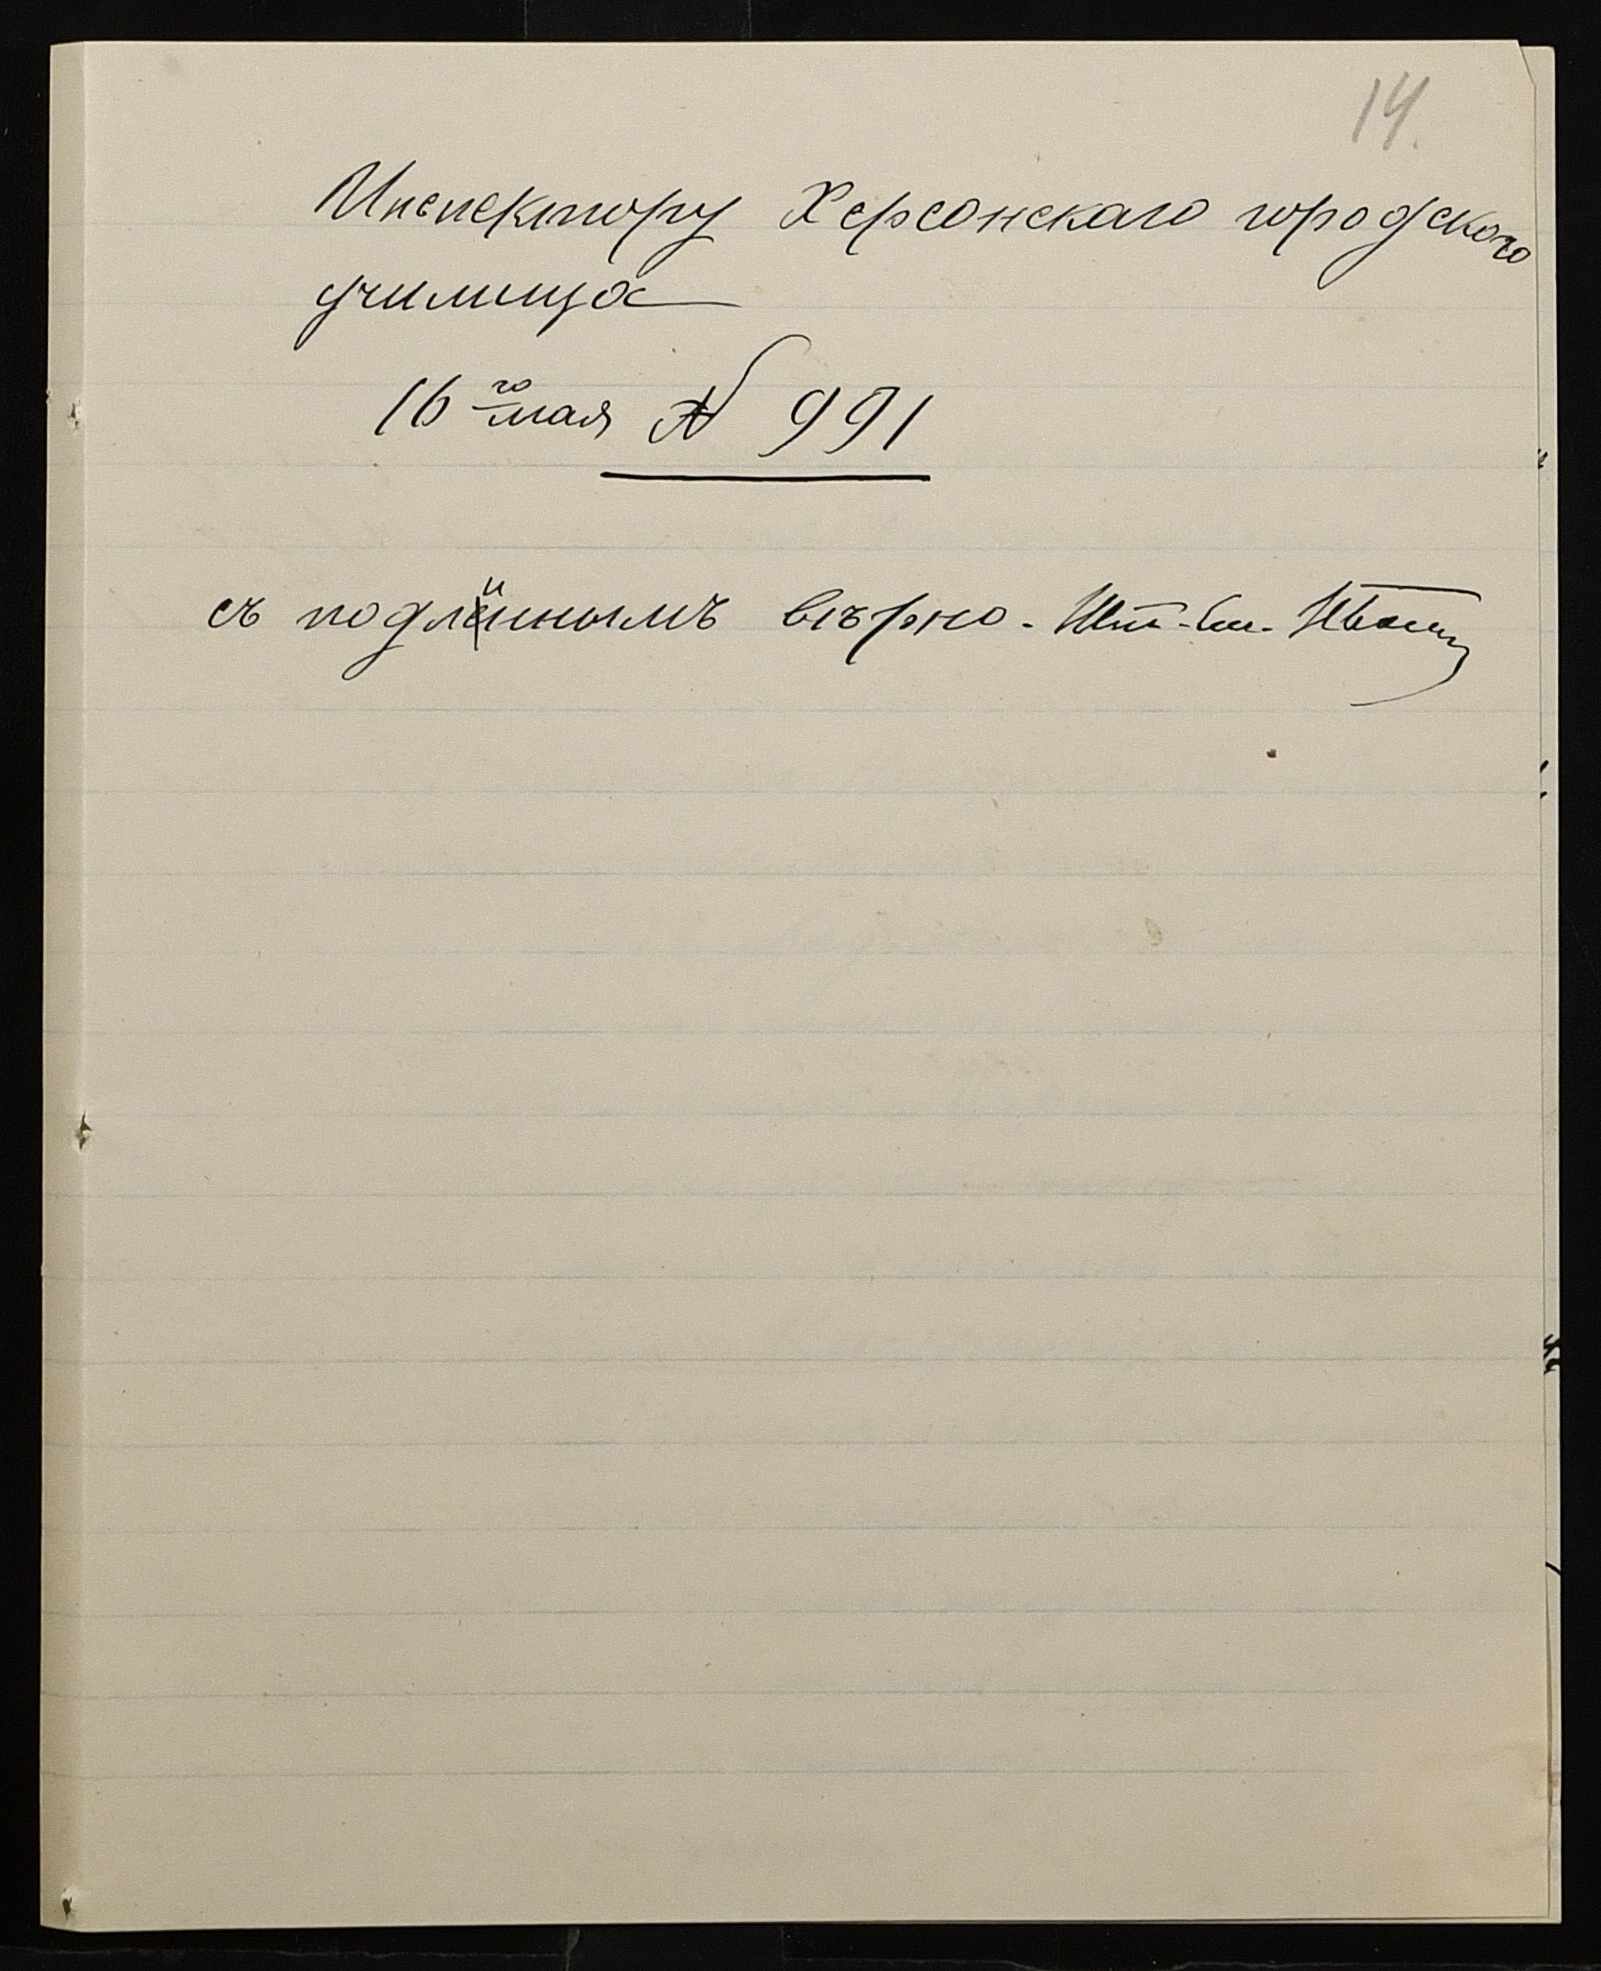 14.
Инспектору Херсонскаго городского
училища
16го мая № 991
съ подлиннымъ вѣрно.